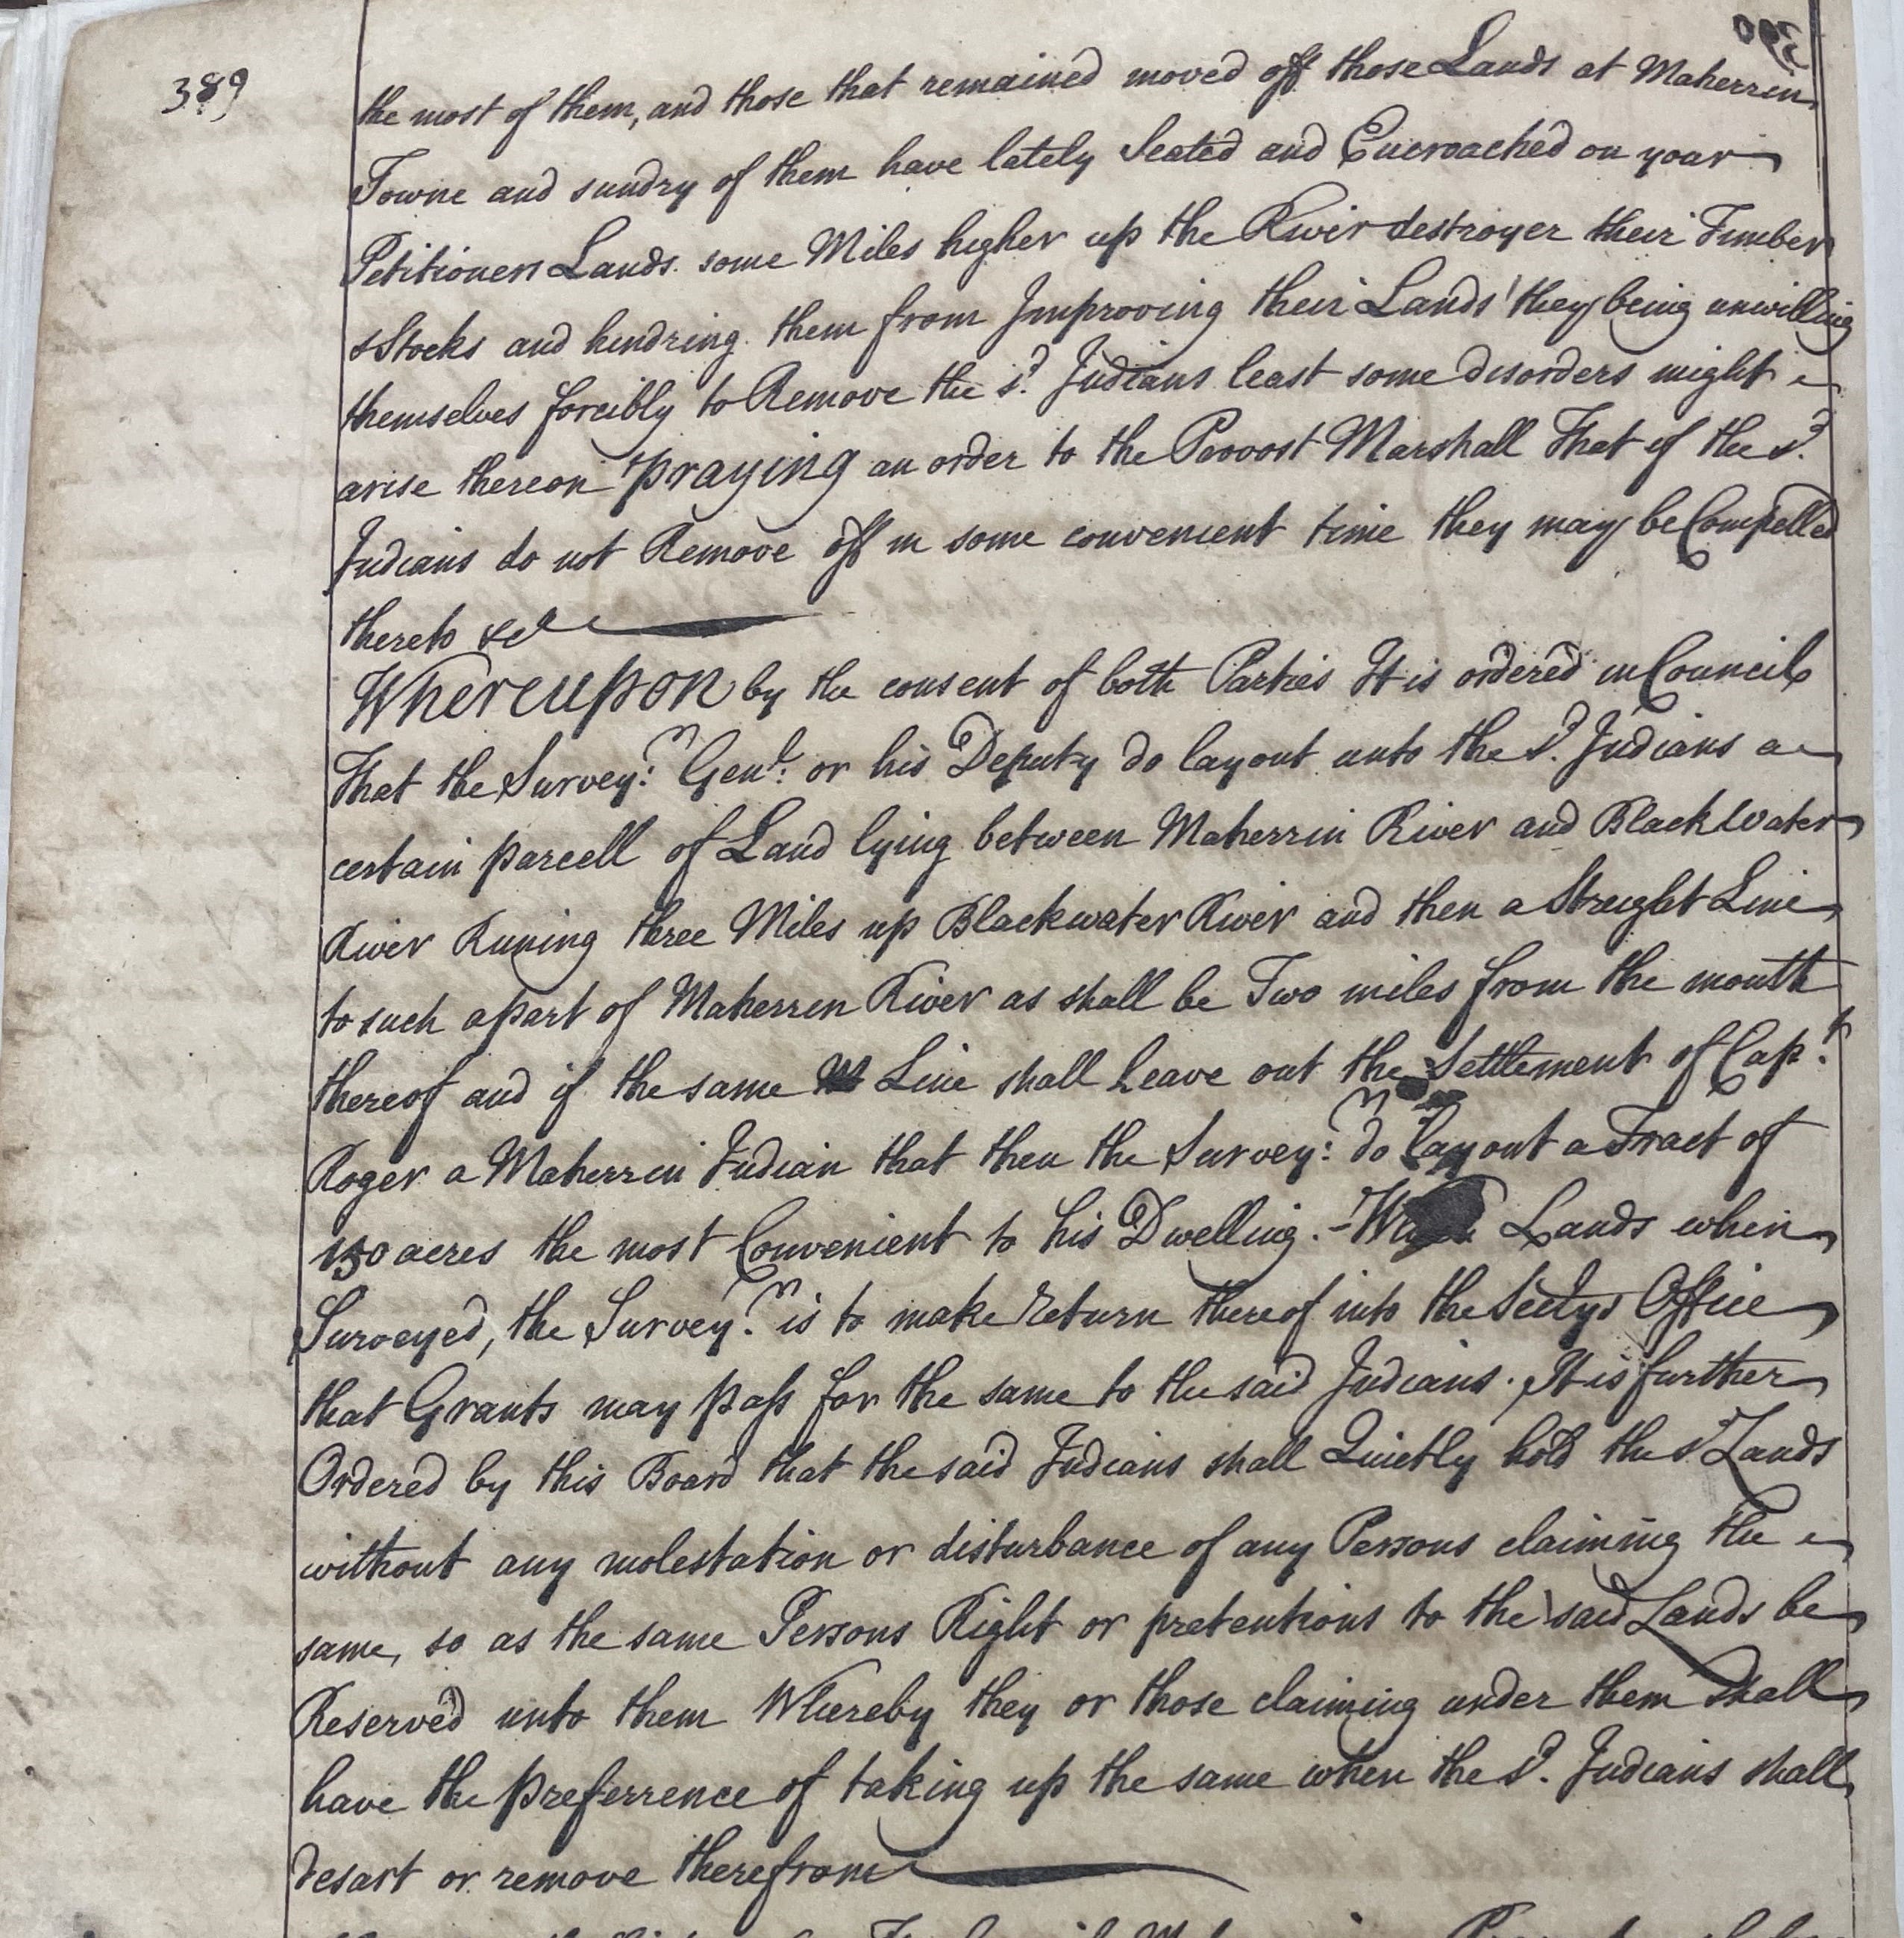 389
the most of them, and those that remained moved off those Lands at Maherrin
Towne and sundry of them have lately Seated and Encroached on your
Petitioners Lands some Miles higher up the River destroyer their Timber
& Stocks and hindring them from Improving their Lands they being unwilling
themselves forcibly to Remove the sd. Indians least some disorders might
arise thereon praying an order to the Provost Marshall That if the sd.
Indians do not Remove off in some convenient time they may be Compelled
thereto &c
Whereupon by the consent of both Parties It is ordered in Council
That the Survey:r Genl: or his Deputy do layout unto the sd. Indians a
certain parcell of Land lying between Maherrin River and Blackwater
River Runing three Miles up Blackwater River and then a Streight Line
to such apart of Maherren River as shall be Two miles from the mouth
thereof and if the same Line shall Leave out the Settlement of Capt.
Roger a Maherrin Indian that then the Survey:r do layout a Tract of
150 acres the most Convenient to his Dwelling. - Lands when
Surveyed, the Survey.r is to make Return thereof into the Sectys Office
that Grants may pass for the same to the said Indians. It is further
Ordered by this Board that the said Indians shall Quietly hold the sd Lands
without any molestation or disturbance of any Persons claiming the
same, so as the same Persons Right or pretentions to the said Lands be
Reserved unto them Whereby they or those claiming under them shall
have the preferrence of taking up the same when the sd. Indians shall
desart or remove therefrom